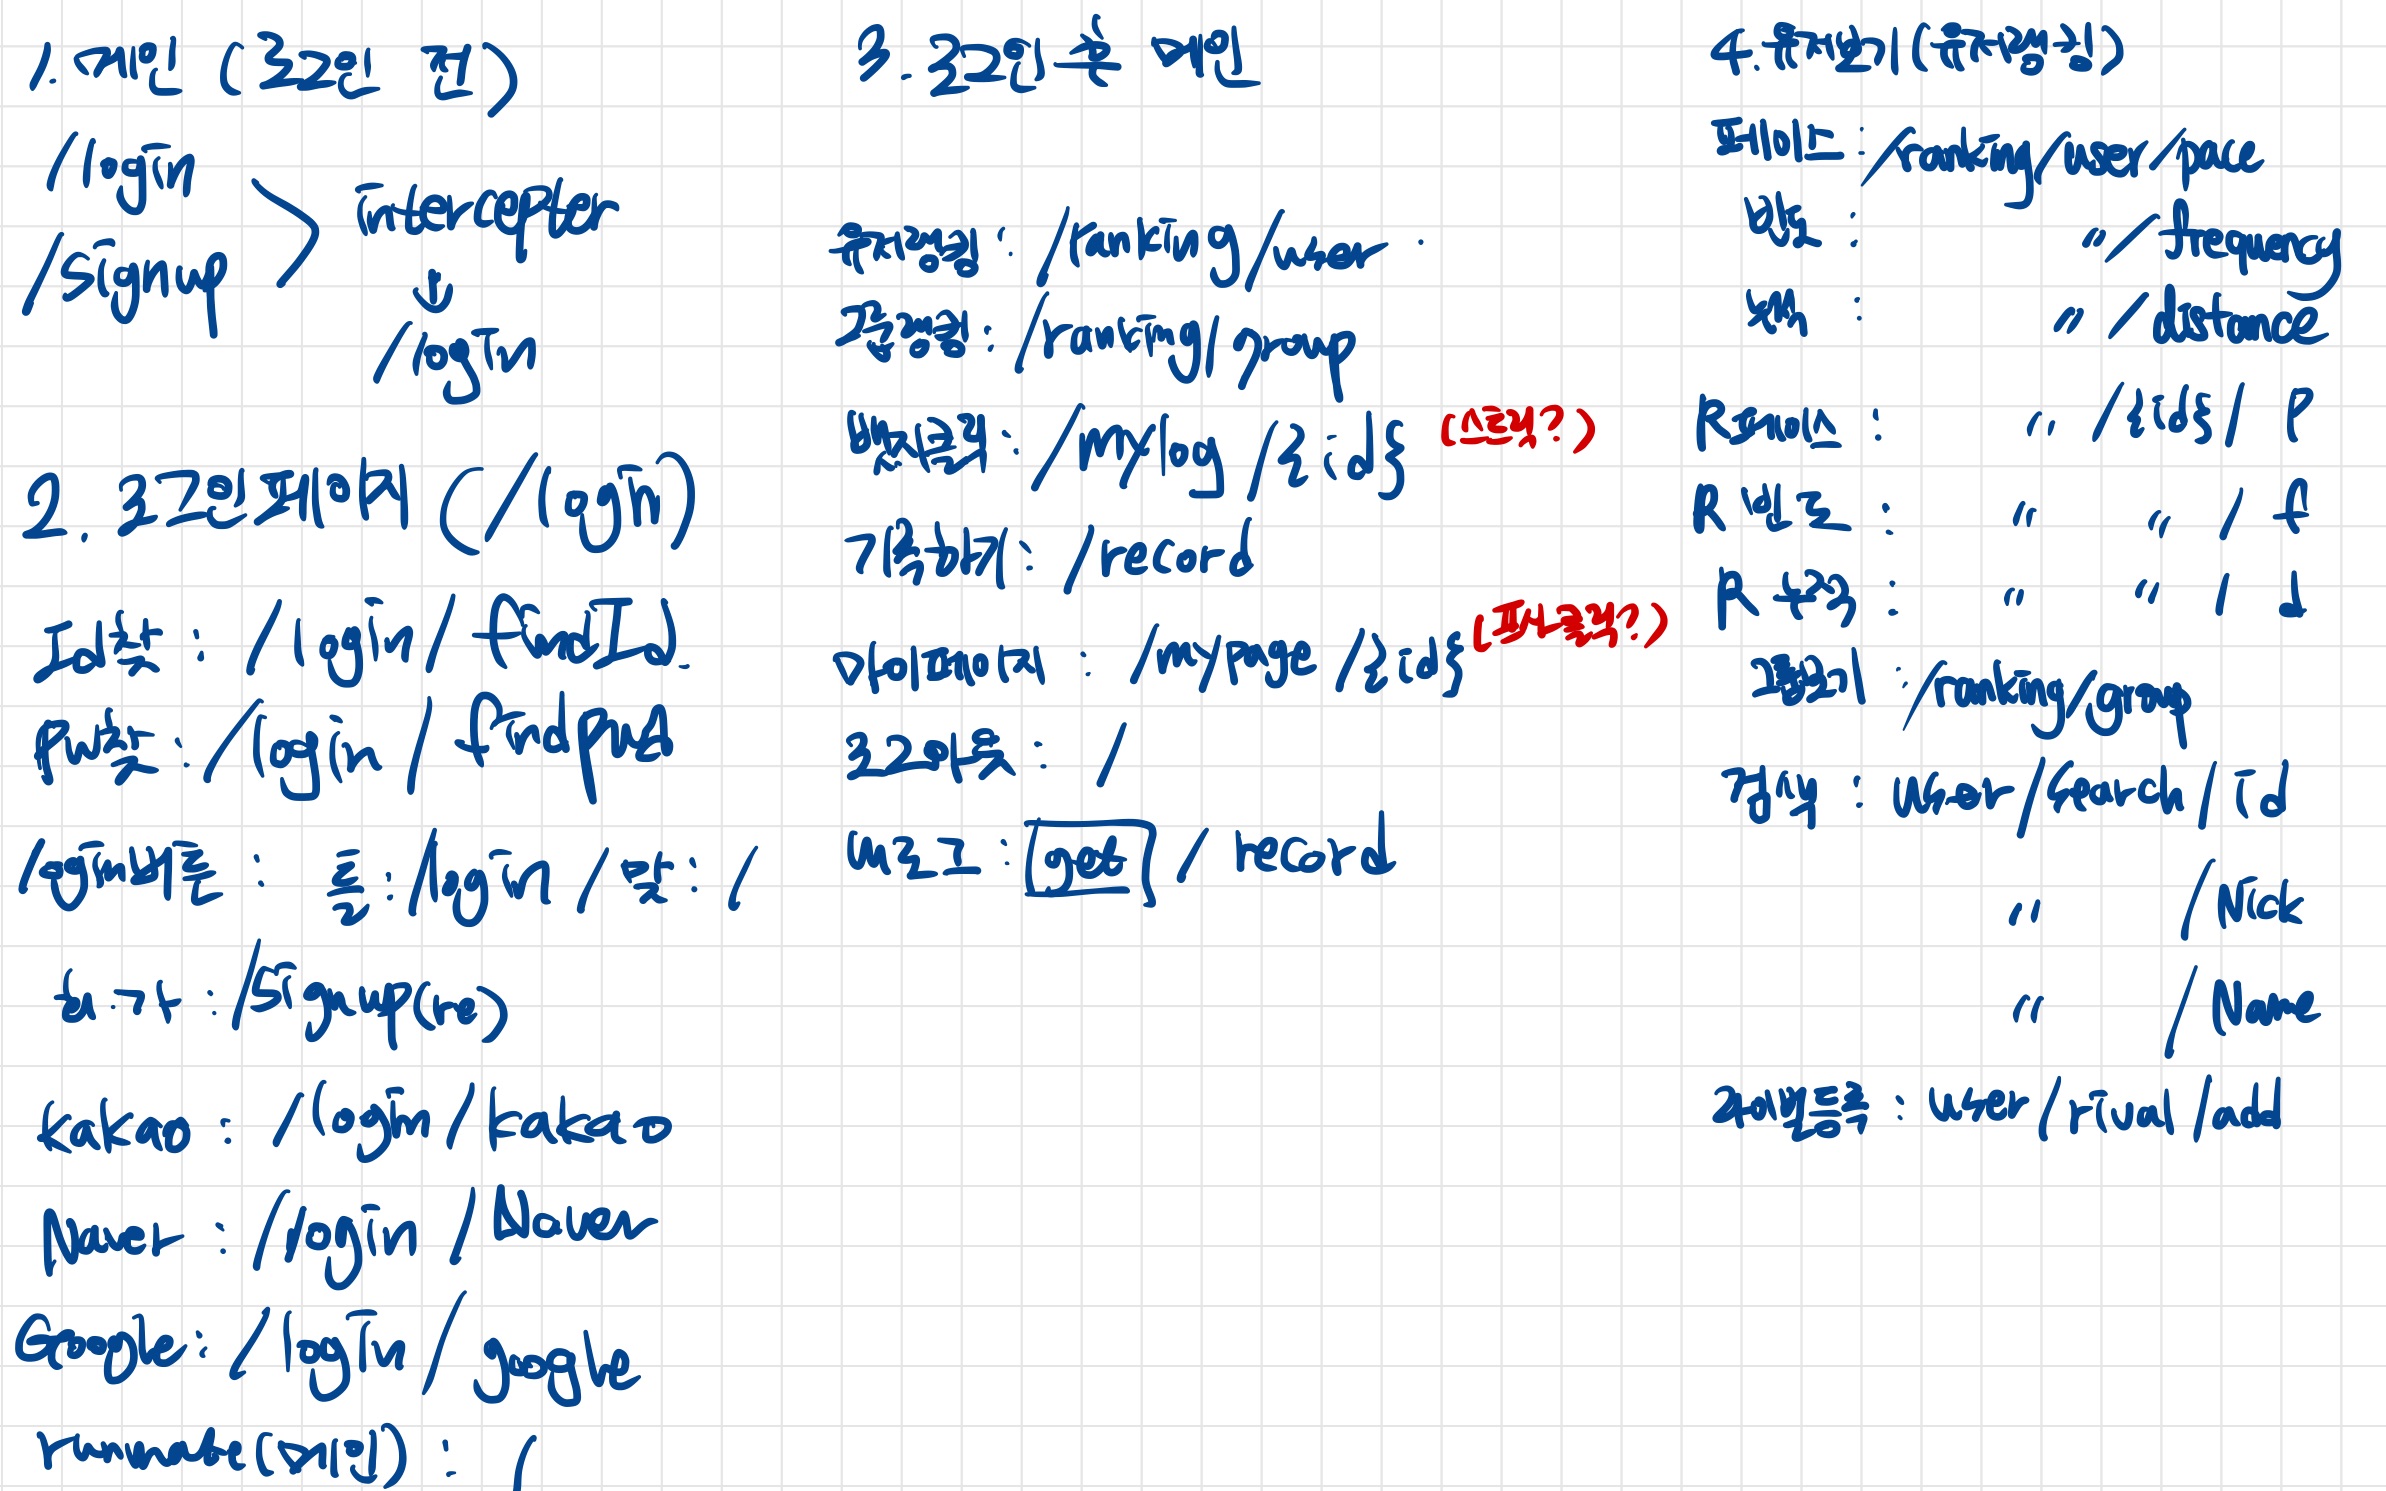 1. 메인 (로그인 전)
/login
/signup
intercepter
↓
/login
2. 로그인 페이지 (/login)
Id찾 : /login/findId
PW찾 : /login/findpwd
login버튼 : 틀 : /login / 맞 : /
회.가 : /signup(re)
kakao : /login/kakao
Naver : /login/Naver
Google : /login/google
runmate(메인) : /
3. 로그인 후 메인
유저랭킹 : /ranking/user
그룹랭킹 : /ranking/group
: /mylog/{id}
기록하기 : /record
마이페이지 : /mypage/{id}
로그아웃 : /
: get /record
4. 유저보기(유저랭킹)
페이스 : /ranking/user/pace
빈도 : 〃/frequency
: 〃/distance
R페이스 : 〃/{id}/ P
R 빈도 : 〃 〃 / f
R 누적 : 〃 〃 / d
: /ranking/group
검색 : user/search/id
〃 /Nick
〃 /Name
라이벌등록 : user/rival/add